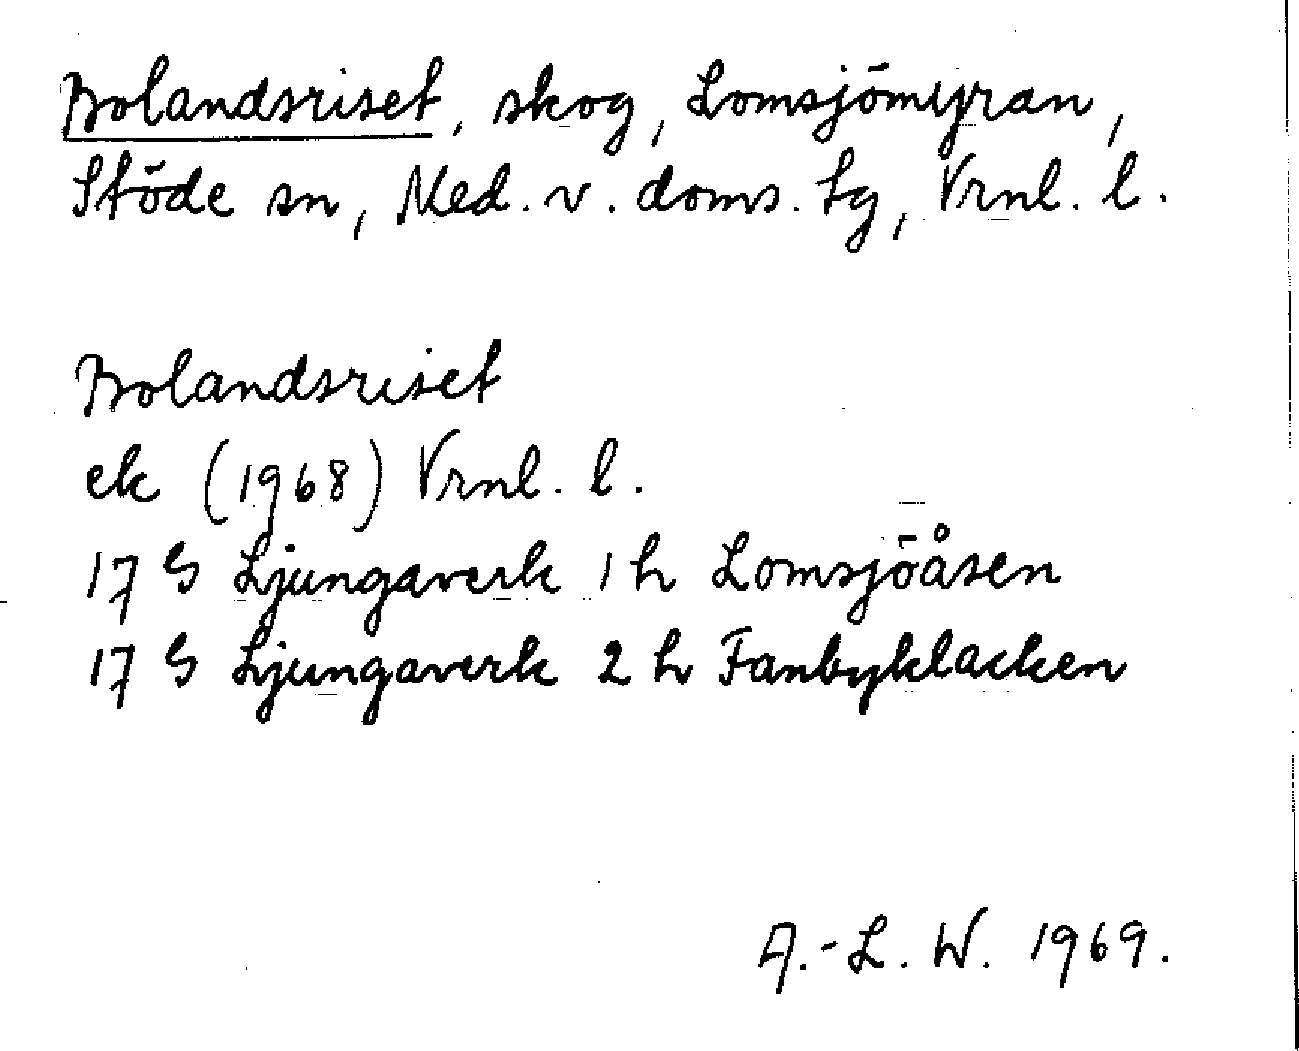 Bolandsriset, skog, Lomsjömyran,
Stöde sn, Med. v. doms. tg, Vrnl. l.
Bolandsriset
ek (1968) Vrnl. l.
17 G Ljungaverk 1 h Lomsjöåsen
17 G Ljungaverk 2 h Fanbyklacken
A.-L. W. 1969.